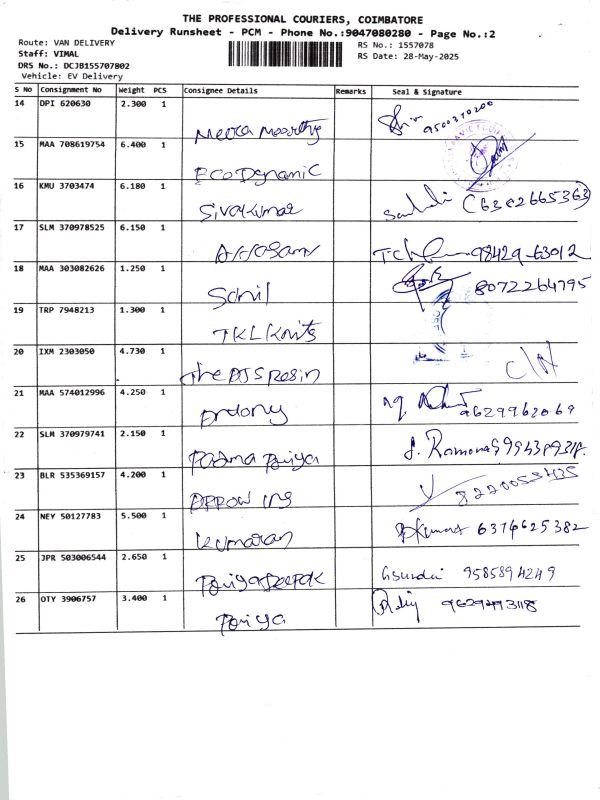 THE PROFESSIONAL COURIERS, COIMBATORE
Delivery Runsheet - PCM - Phone No.:9047080280 - Page No.:2
Route: VAN DELIVERY
Staff: VIMAL
DRS No.: DCJB155707802
Vehicle: EV Delivery
RS No.: 1557078
RS Date: 28-May-2025
S No Consignment No Weight PCS Consignee Details Remarks Seal & Signature
14 DPI 620630 2.300 1 Meera Moorthy 9500370200
15 MAA 708619754 6.400 1 EcoDynamic
16 KMU 3703474 6.180 1 Sivakumar (6382665363)
17 SLM 370978525 6.150 1 98429-63012
18 MAA 303082626 1.250 1 Sonil 8072264795
19 TRP 7948213 1.300 1 TKL Knits
20 IXM 2303050 4.730 1 The DJS Resin C/N
21 MAA 574012996 4.250 1 Antony 9629962069
22 SLM 370979741 2.150 1 Padma Priya
23 BLR 535369157 4.200 1 8220053435
24 NEY 50127783 5.500 1 Kumaran 6374625382
25 JPR 503006544 2.650 1 Priyadeepak 9585894249
26 OTY 3906757 3.400 1 Priya